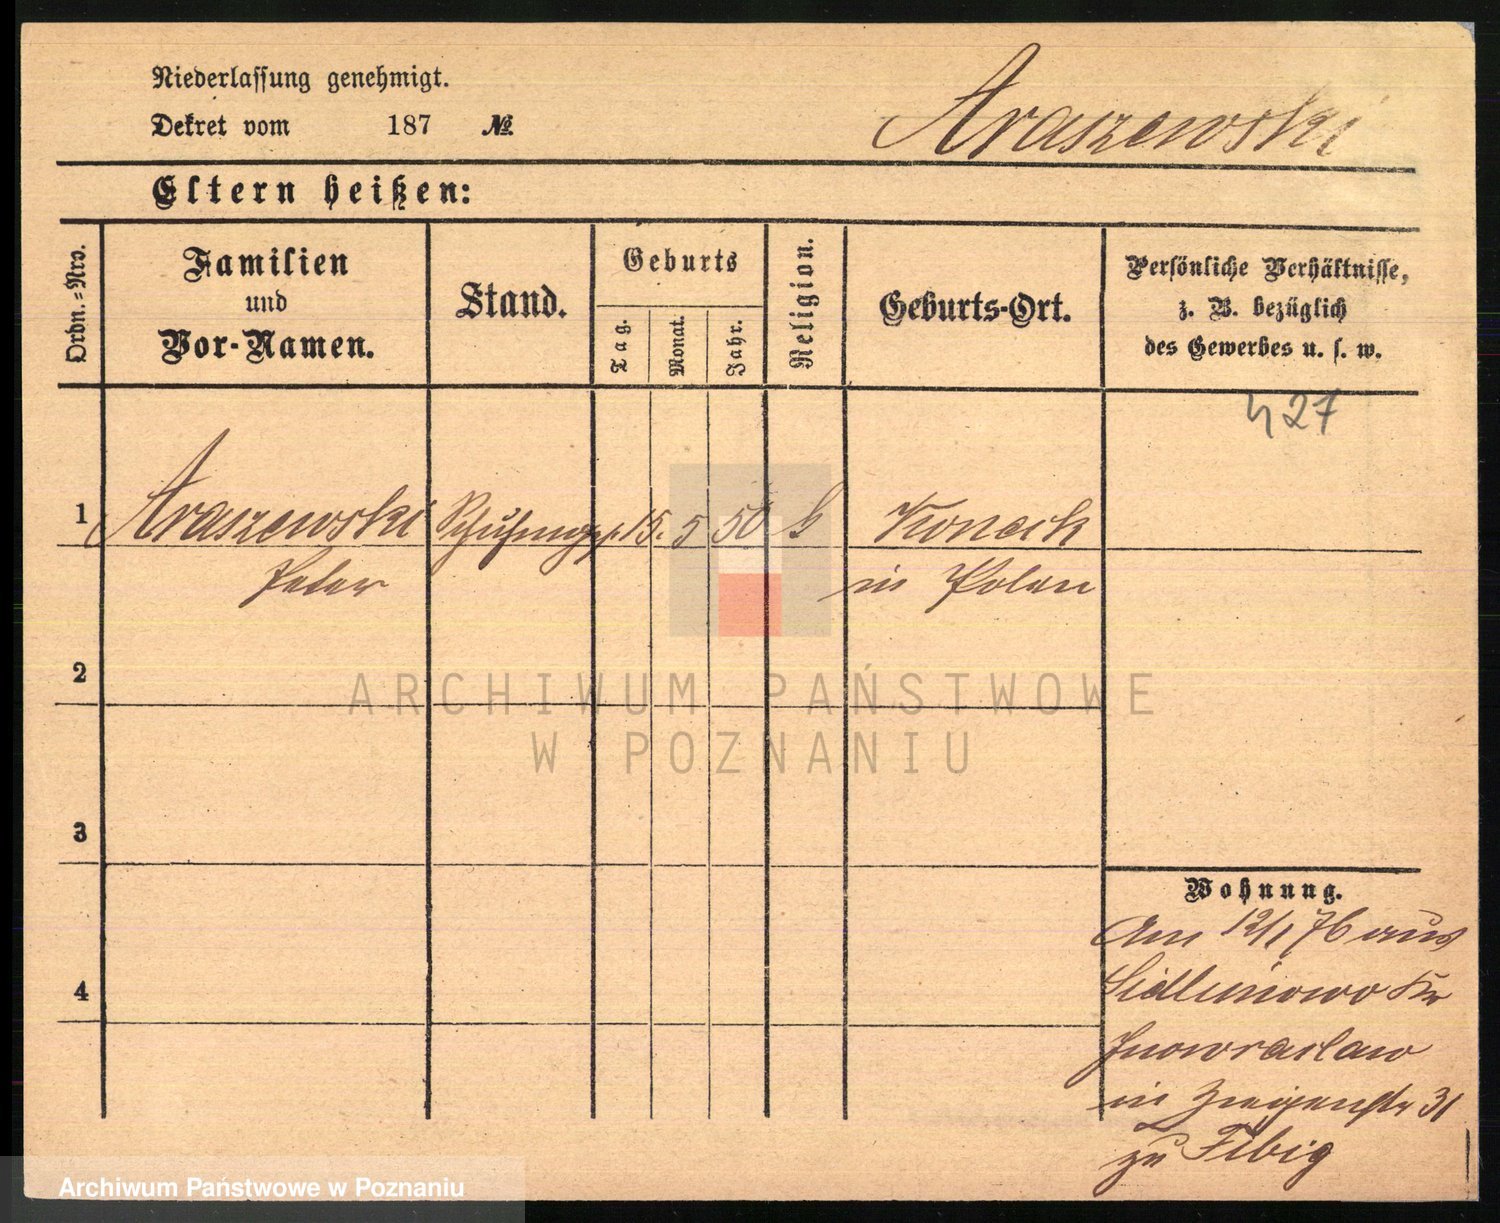 Niederlassung genehmigt.
Dekret vom 187 №
Araszewski
Eltern heißen:
Ordn.=Nro.
Familien
und
Vor-Namen.
Stand.
Geburts
Tag.
Monat.
Jahr.
Religion.
Geburts-Ort.
Persönliche Verhältnisse,
z. B. bezüglich
des Gewerbes u. s. w.
427
1 Araszewski 15. 5 50 k Koneck
Peter in Polen
2
3
4
Wohnung.
Am 12/1 76 aus
Kr
Inowraclaw
in 31
zu Fibig
ARCHIWUM PAŃSTWOWE
W POZNANIU
Archiwum Państwowe w Poznaniu